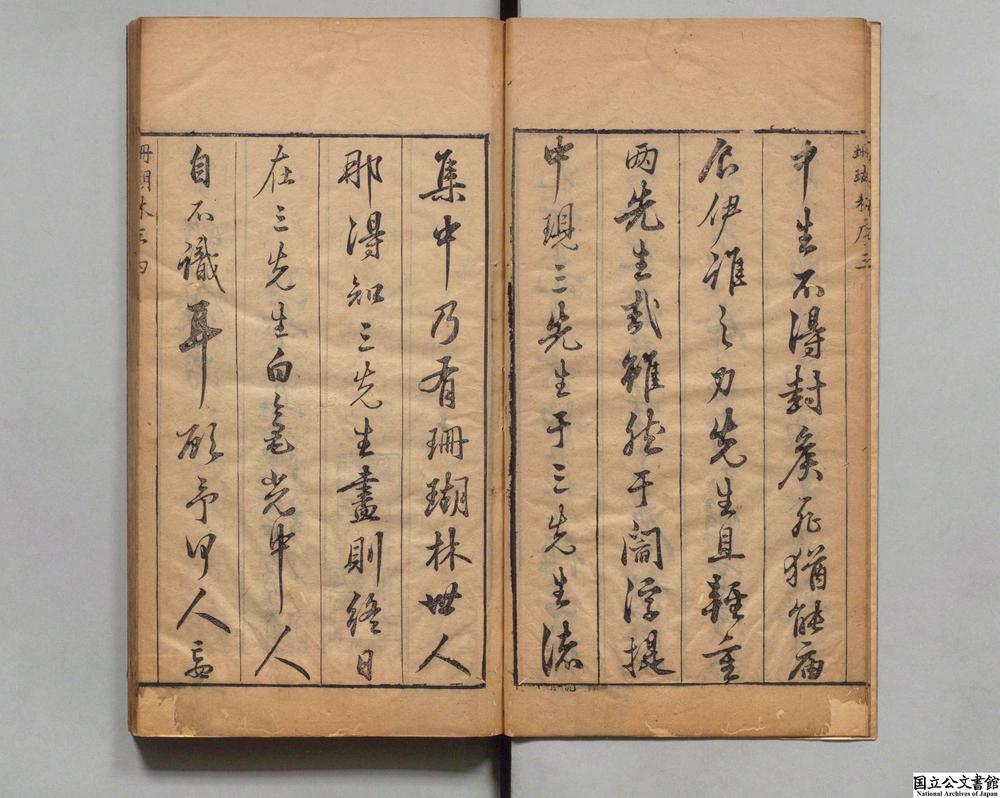 中生不得封矦死猶能廟
食伊誰之力先生且輕重
两先生哉雖然于閻浮提
中現三先生于三先生諸
集中乃有珊瑚林世人
那得知三先生盡則終日
在三先生白毫光中人
自不識耳顧予何人妄
珊瑚林序三
珊瑚林序四
国立公文書館
National Archives of Japan